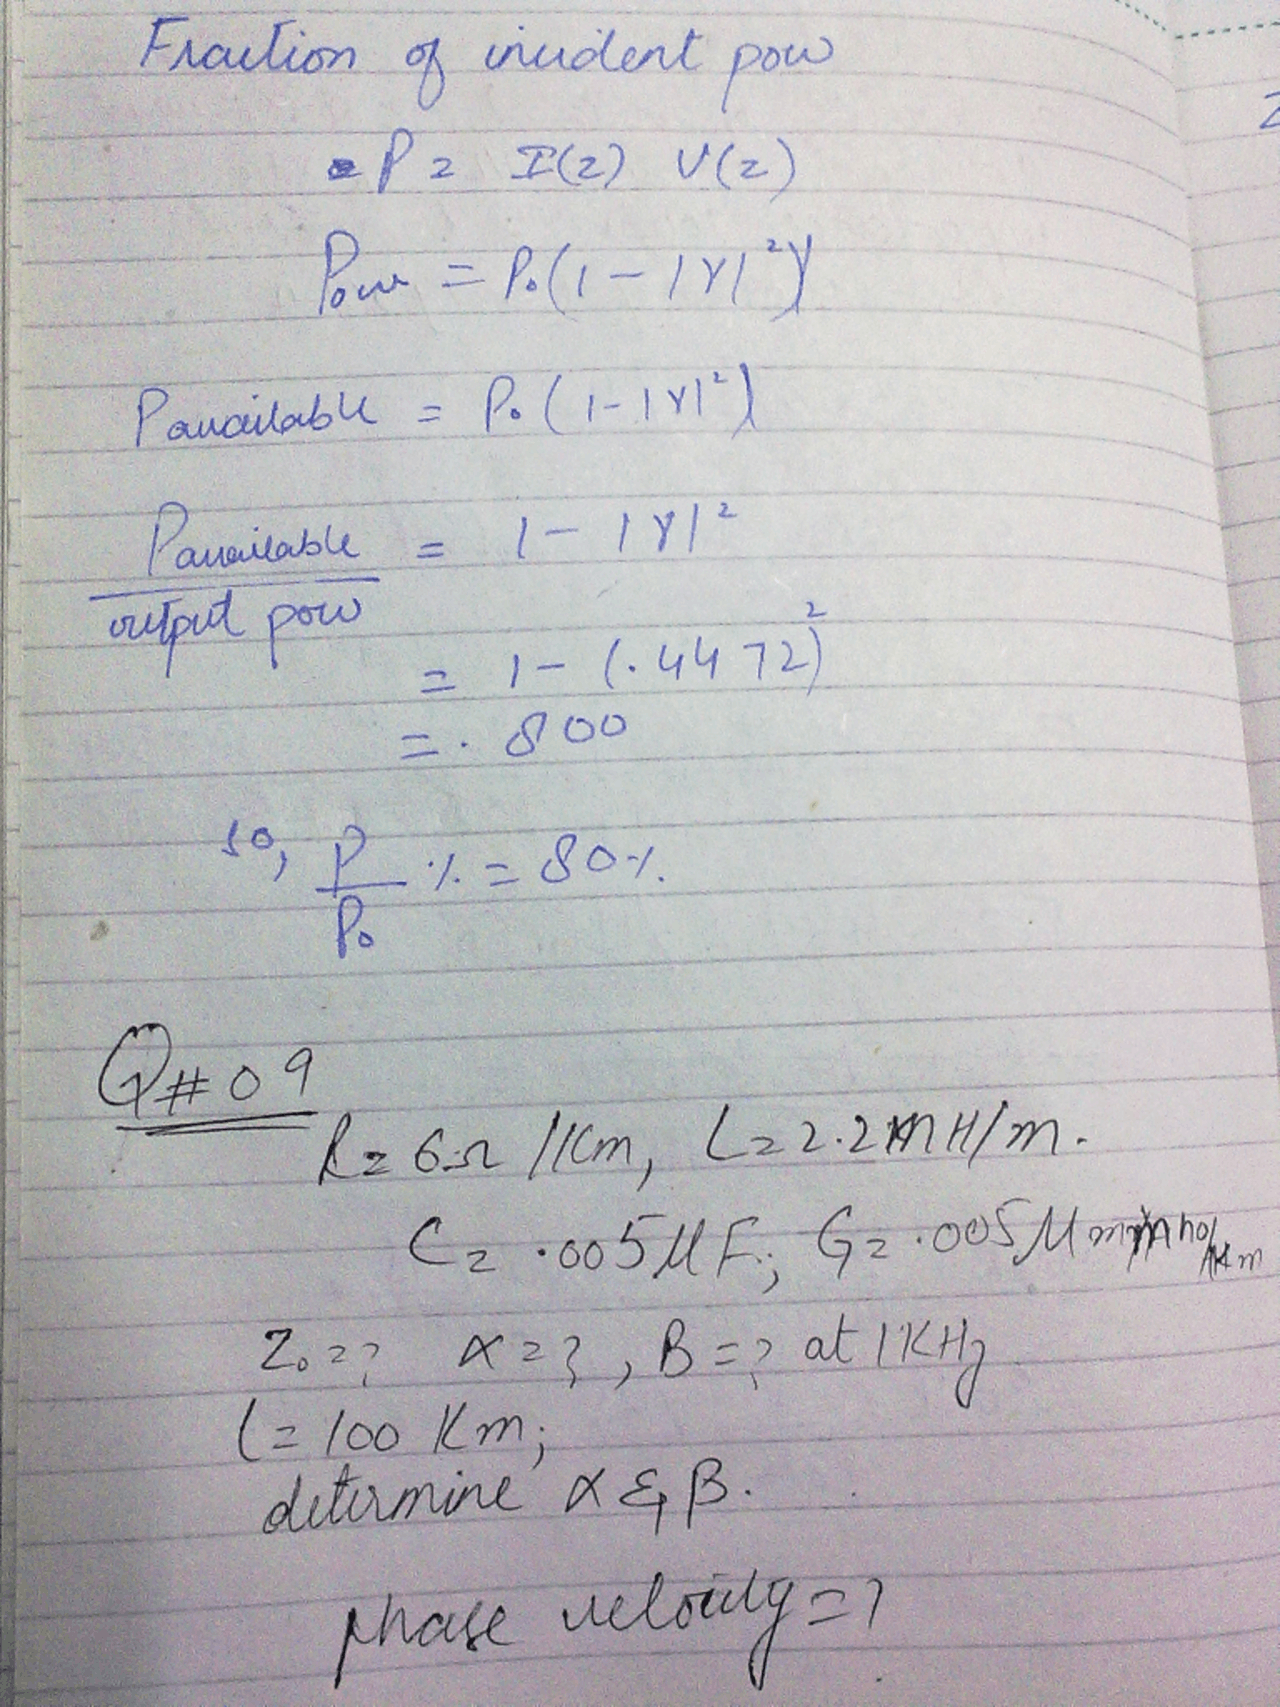 Fraction of incident pow
P = I(z) V(z)
Pow = P₀(1 - |γ|²)
Pavailable = P₀(1-|γ|²)
Pavailable / output pow = 1 - |γ|²
= 1 - (.4472)²
= .800
so, P/P₀ % = 80%
Q#09
R = 6Ω/Km, L = 2.2mH/m.
C = .005μF; G = .005μ mho/Km
Z₀ = ? α = ?, B = ? at 1KHz
l = 100 Km;
determine α & β.
phase velocity = ?